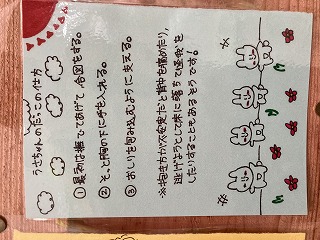 うさちゃんのだっこの仕方
① 最初は撫でてあげて、合図をする。
② そっと胸の下に手を入れる。
③ おしりを包み込むように支える。
※抱き方が不安定だと背中を痛めたり、
逃げようとして床に落ちて怪我を
したりすることもあるそうです!